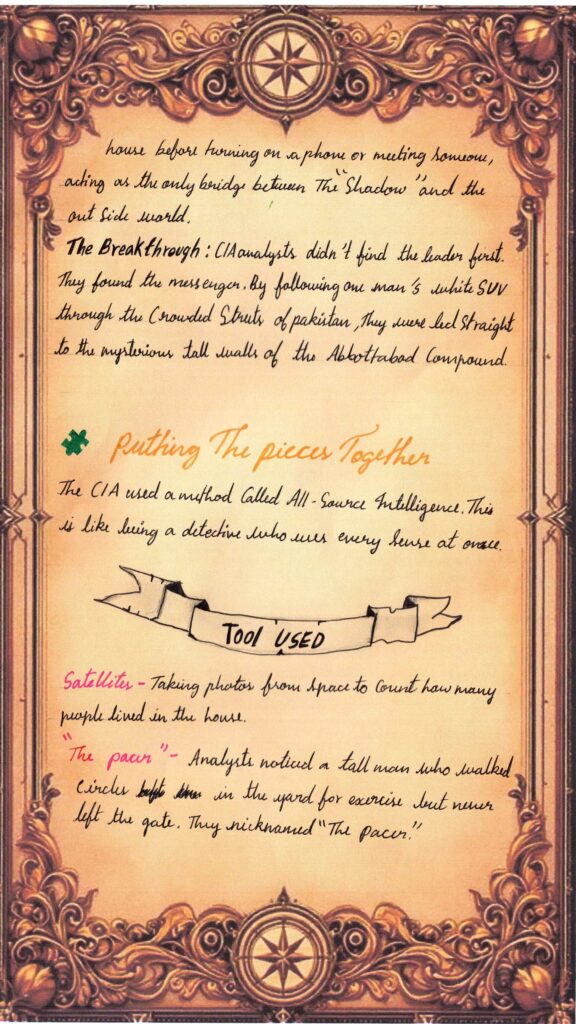 house before turning on a phone or meeting someone,
acting as the only bridge between The "Shadow" and the
out side world.
The Breakthrough : CIA analysts didn't find the leader first.
They found the messenger. By following one man's white SUV
through the Crowded Struts of pakistan , They were led Straight
to the mysterious tall walls of the Abbottabad Compound.
Putting The pieces Together
The CIA used a method Called All-Source Intelligence. This
is like being a detective who uses every sense at once.
TOOl USED
Satellites - Taking photos from space to Count how many
people lived in the house.
"The pacer" - Analysts noticed a tall man who walked
Circles in the yard for exercise but never
left the gate. They nicknamed "The pacer."